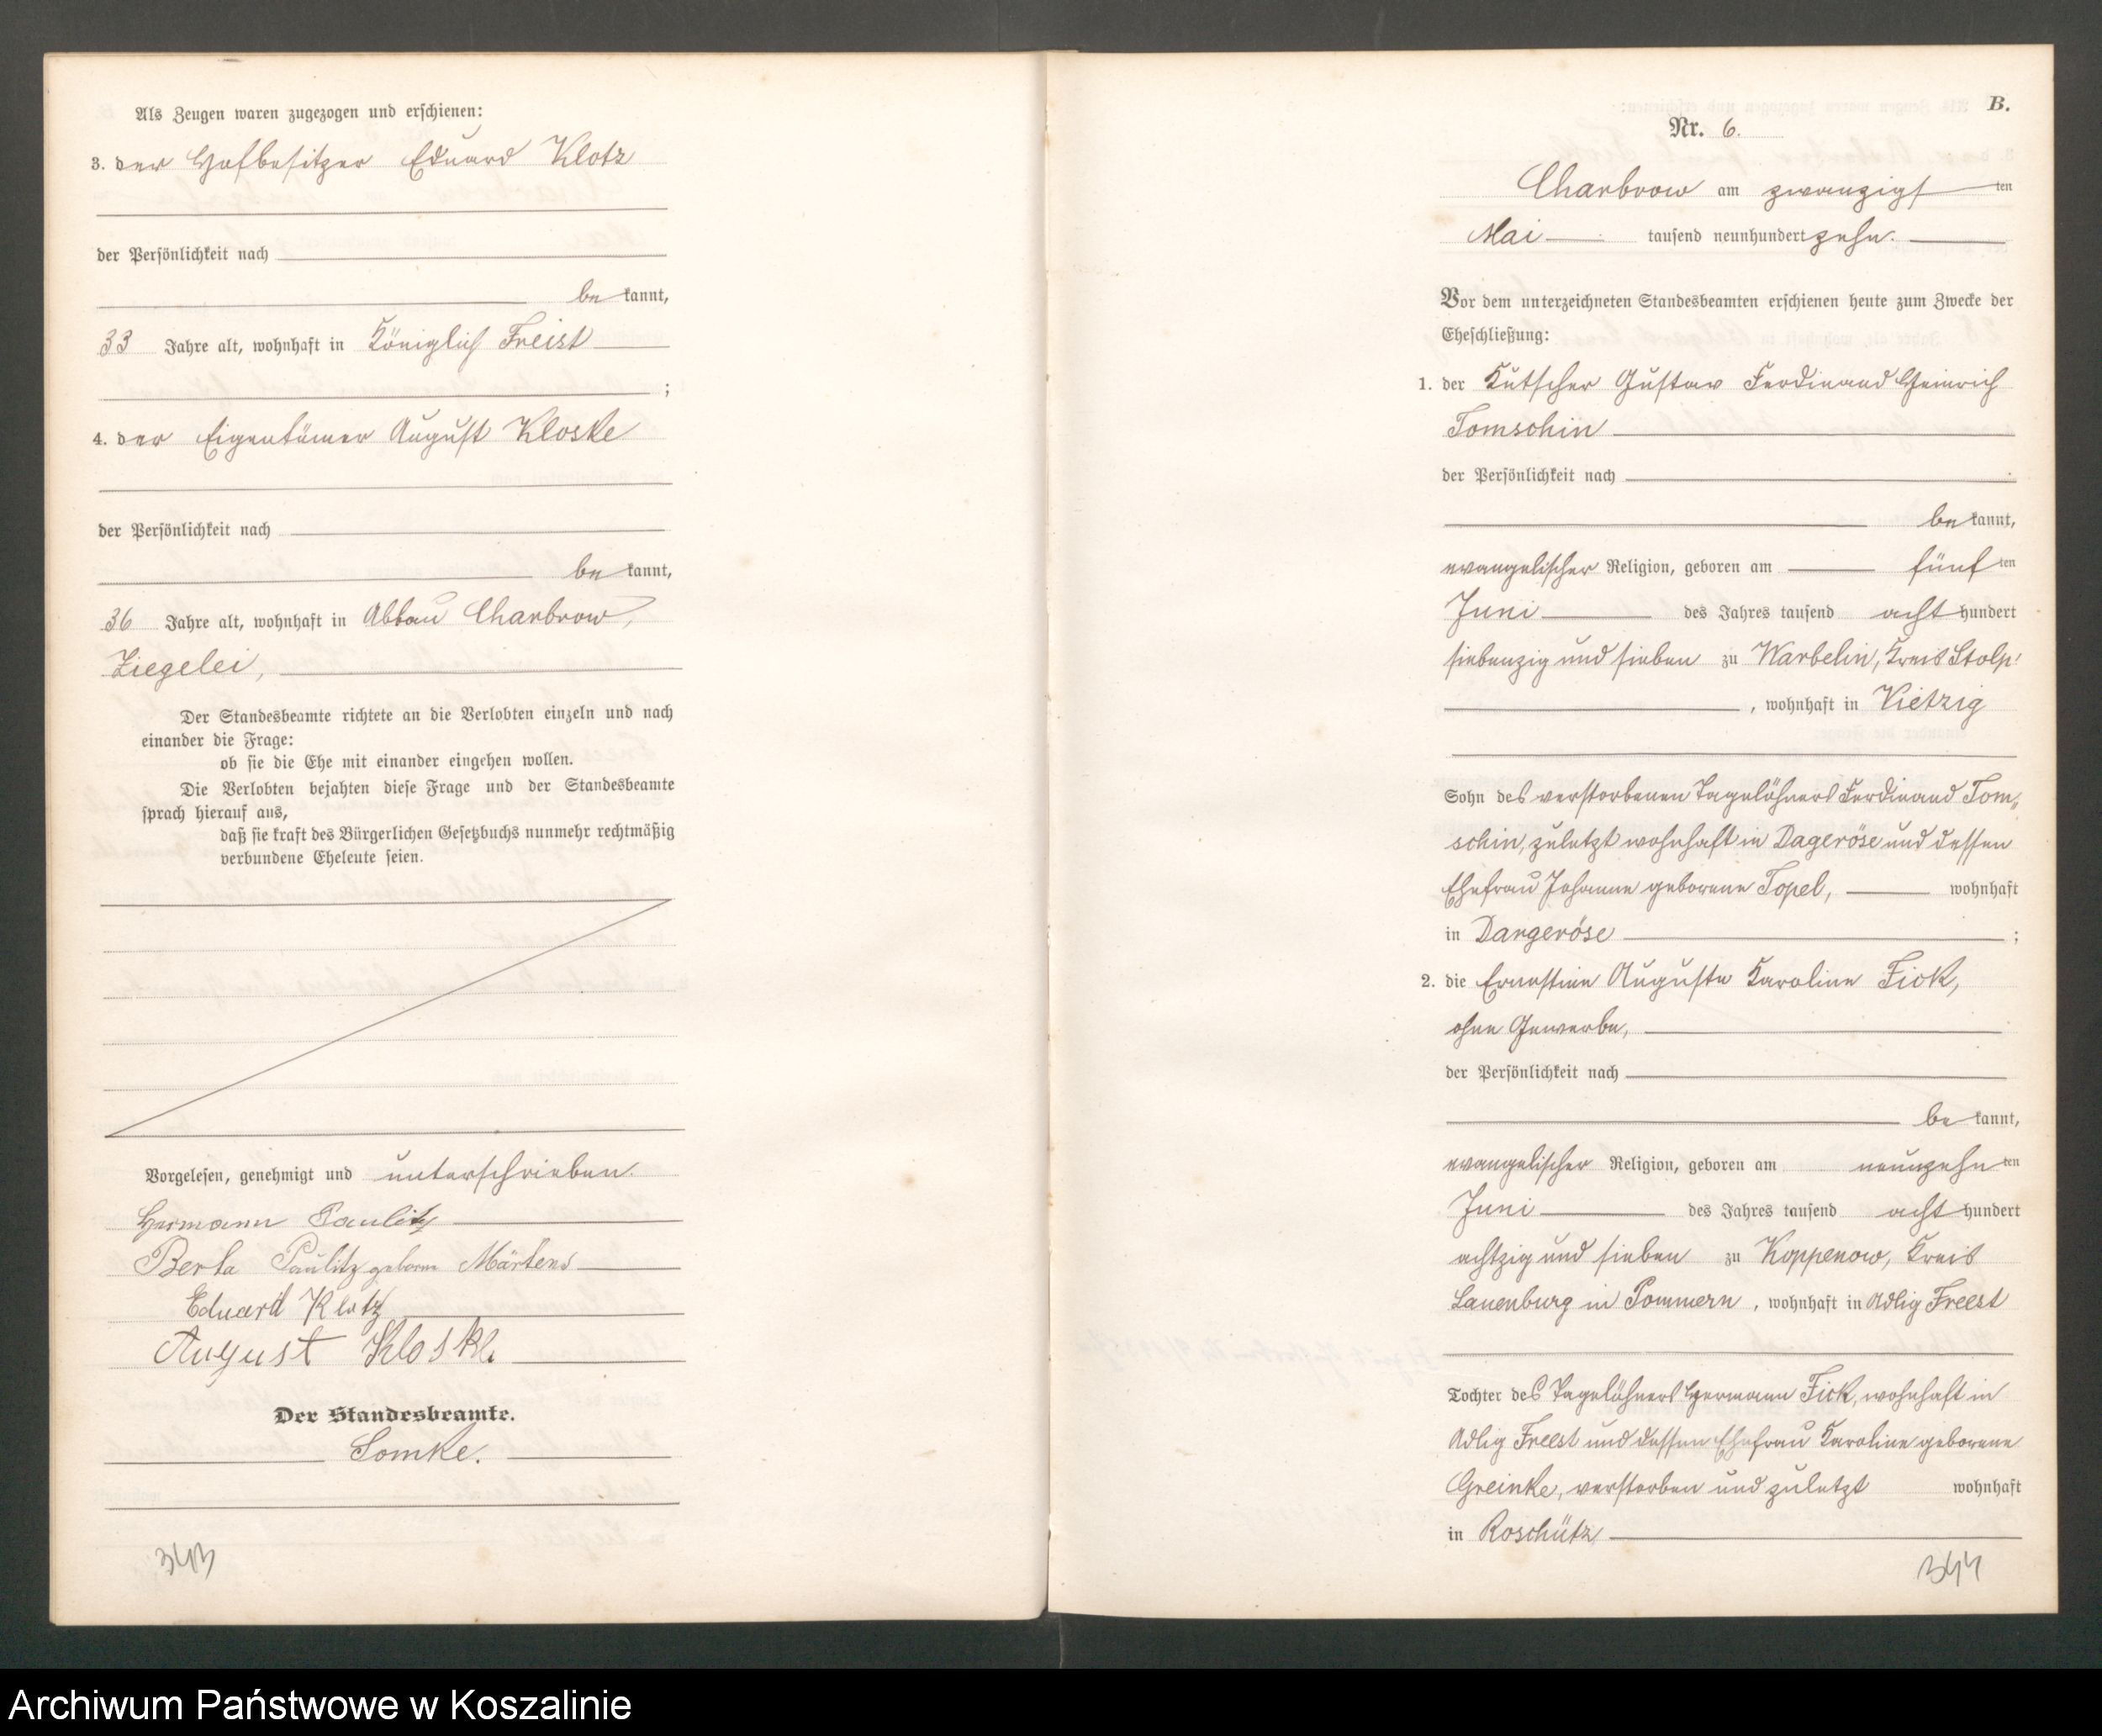 Als Zeugen waren zugezogen und erschienen:
3. der Hofbesitzer Eduard Klotz
der Persönlichkeit nach
be kannt,
33 Jahre alt, wohnhaft in Königlich Freist
;
4. der Eigentümer August Kloske
der Persönlichkeit nach
be kannt,
36 Jahre alt, wohnhaft in Abbau Charbrow,
Ziegelei,
Der Standesbeamte richtete an die Verlobten einzeln und nach
einander die Frage:
ob sie die Ehe mit einander eingehen wollen.
Die Verlobten bejahten diese Frage und der Standesbeamte
sprach hierauf aus,
daß sie kraft des Bürgerlichen Gesetzbuchs nunmehr rechtmäßig
verbundene Eheleute seien.
Vorgelesen, genehmigt und unterschrieben.
Hermann Paulitz
Berta Paulitz geborne Märtens
Eduard Klotz
August Kloske
Der Standesbeamte.
Lomke.
343
B.
Nr. 6.
Charbrow am zwanzigsten
Mai tausend neunhundert zehn.
Vor dem unterzeichneten Standesbeamten erschienen heute zum Zwecke der
Eheschließung:
1. der Kutscher Gustav Ferdinand Heinrich
Tomschin
der Persönlichkeit nach
be kannt,
evangelischer Religion, geboren am fünf ten
Juni des Jahres tausend acht hundert
siebenzig und sieben zu Warbelin, Kreis Stolp
, wohnhaft in Vietzig
Sohn des verstorbenen Tagelöhners Ferdinand Tom„
schin, zuletzt wohnhaft in Dageröse und dessen
Ehefrau Johanne geborene Topel, wohnhaft
in Dargeröse ;
2. die Ernestine Auguste Karoline Fick,
ohne Gewerbe,
der Persönlichkeit nach
be kannt,
evangelischer Religion, geboren am neunzehn ten
Juni des Jahres tausend acht hundert
achtzig und sieben zu Koppenow, Kreis
Lauenburg in Pommern, wohnhaft in Adlig Freest
Tochter des Tagelöhners Hermann Fick, wohnhaft in
Adlig Freest und dessen Ehefrau Karoline geborene
Greinke, verstorben und zuletzt wohnhaft
in Roschütz
344
Archiwum Państwowe w Koszalinie